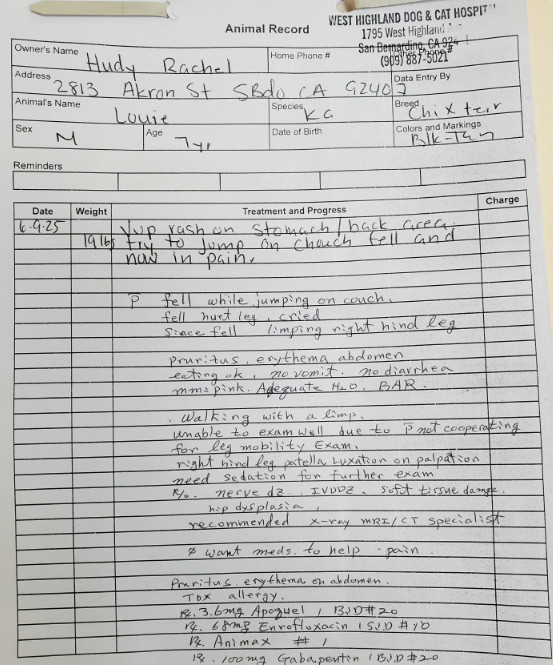 WEST HIGHLAND DOG & CAT HOSPIT
Animal Record
1795 West Highland
San Bernardino, CA 924
(909) 887-5021
Owner's Name Hudy Rachel
Home Phone #
Address 2813 Akron St SBdo CA 92407
Data Entry By
Animal's Name Louie
Species K9
Breed Chi X terr
Sex M
Age 7yr
Date of Birth
Colors and Markings Blk-Tan
Reminders
Date Weight Treatment and Progress Charge
6-9-25 rash on stomach/back area
19 lbs try to jump on chouch fell and
now in pain.
P fell while jumping on couch.
fell hurt leg, cried
Since fell limping right hind leg
Pruritus, erythema abdomen
eating ok, no vomit. no diarrhea
mms pink. Adequate H2O. BAR.
. Walking with a limp.
unable to exam well due to P not cooperating
for leg mobility Exam.
right hind leg patella Luxation on palpation
need sedation for further exam
R/o. nerve dz. IVDDZ. soft tissue damge.
hip dysplasia,
recommended x-ray MRI/CT specialist
want meds. to help - pain.
Pruritus. erythema on abdomen.
TDX allergy.
Rx. 3.6mg Apoquel 1 BID #20
Rx. 68mg Enrofloxacin 1 SID #10
Rx. Animax # 1
Rx. 100mg Gabapentin 1 BID #20